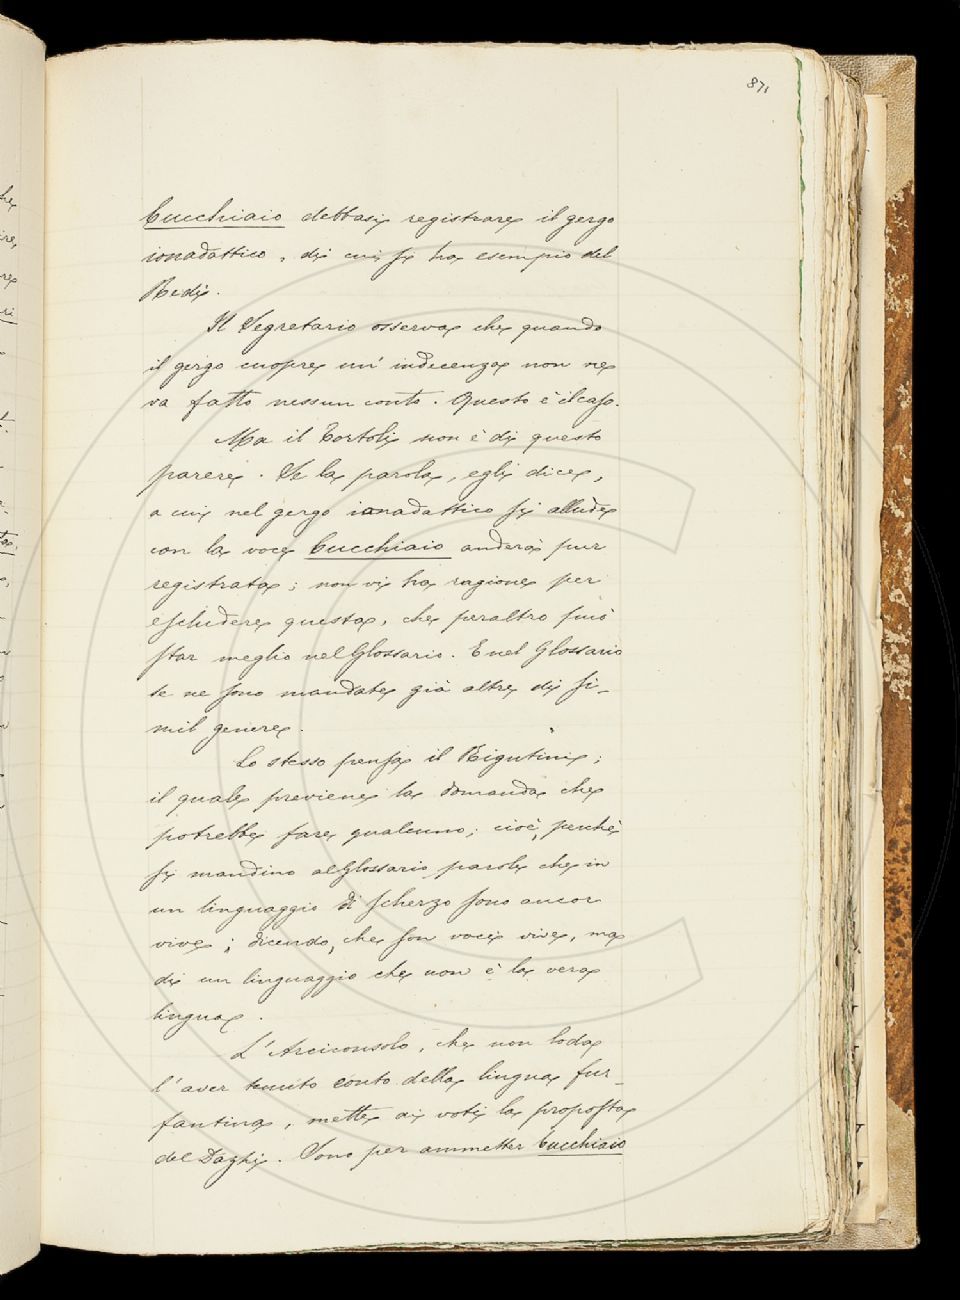 871
Cucchiaio debbasi registrare il gergo
ionadattico, di cui si ha esempio del
Redi.
Il Segretario osserva che quando
il gergo cuopre un' indecenza non ne
va fatto nessun conto. Questo è il caso.
Ma il Tortoli non è di questo
parere. Se la parola, egli dice,
a cui nel gergo ionadattico si allude
con la voce Cucchiaio anderà pur
registrata; non vi ha ragione per
escludere questa, che peraltro può
star meglio nel Glossario. E nel Glossario
se ne sono mandate già altre di si-
mil genere.
Lo stesso pensa il Rigutini;
il quale previene la domanda che
potrebbe fare qualcuno; cioè, perchè
si mandino al Glossario parole che in
un linguaggio di scherzo sono ancor
vive; dicendo, che son voci vive, ma
di un linguaggio che non è la vera
lingua.
L'Arciconsolo, che non loda
l'aver tenuto conto della lingua fur-
fantina, mette ai voti la proposta
del Dazzi. Sono per ammetter Cucchiaio